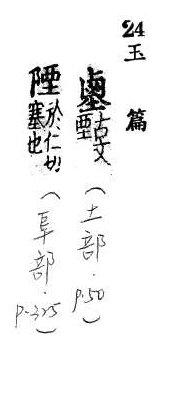 24 玉篇
古文垔（土部．p.50）
陻於仁切塞也（阜部．p.325）